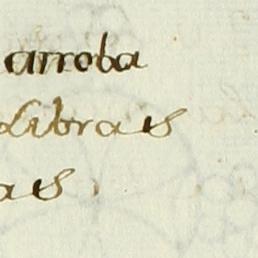 arroba
Libras
as